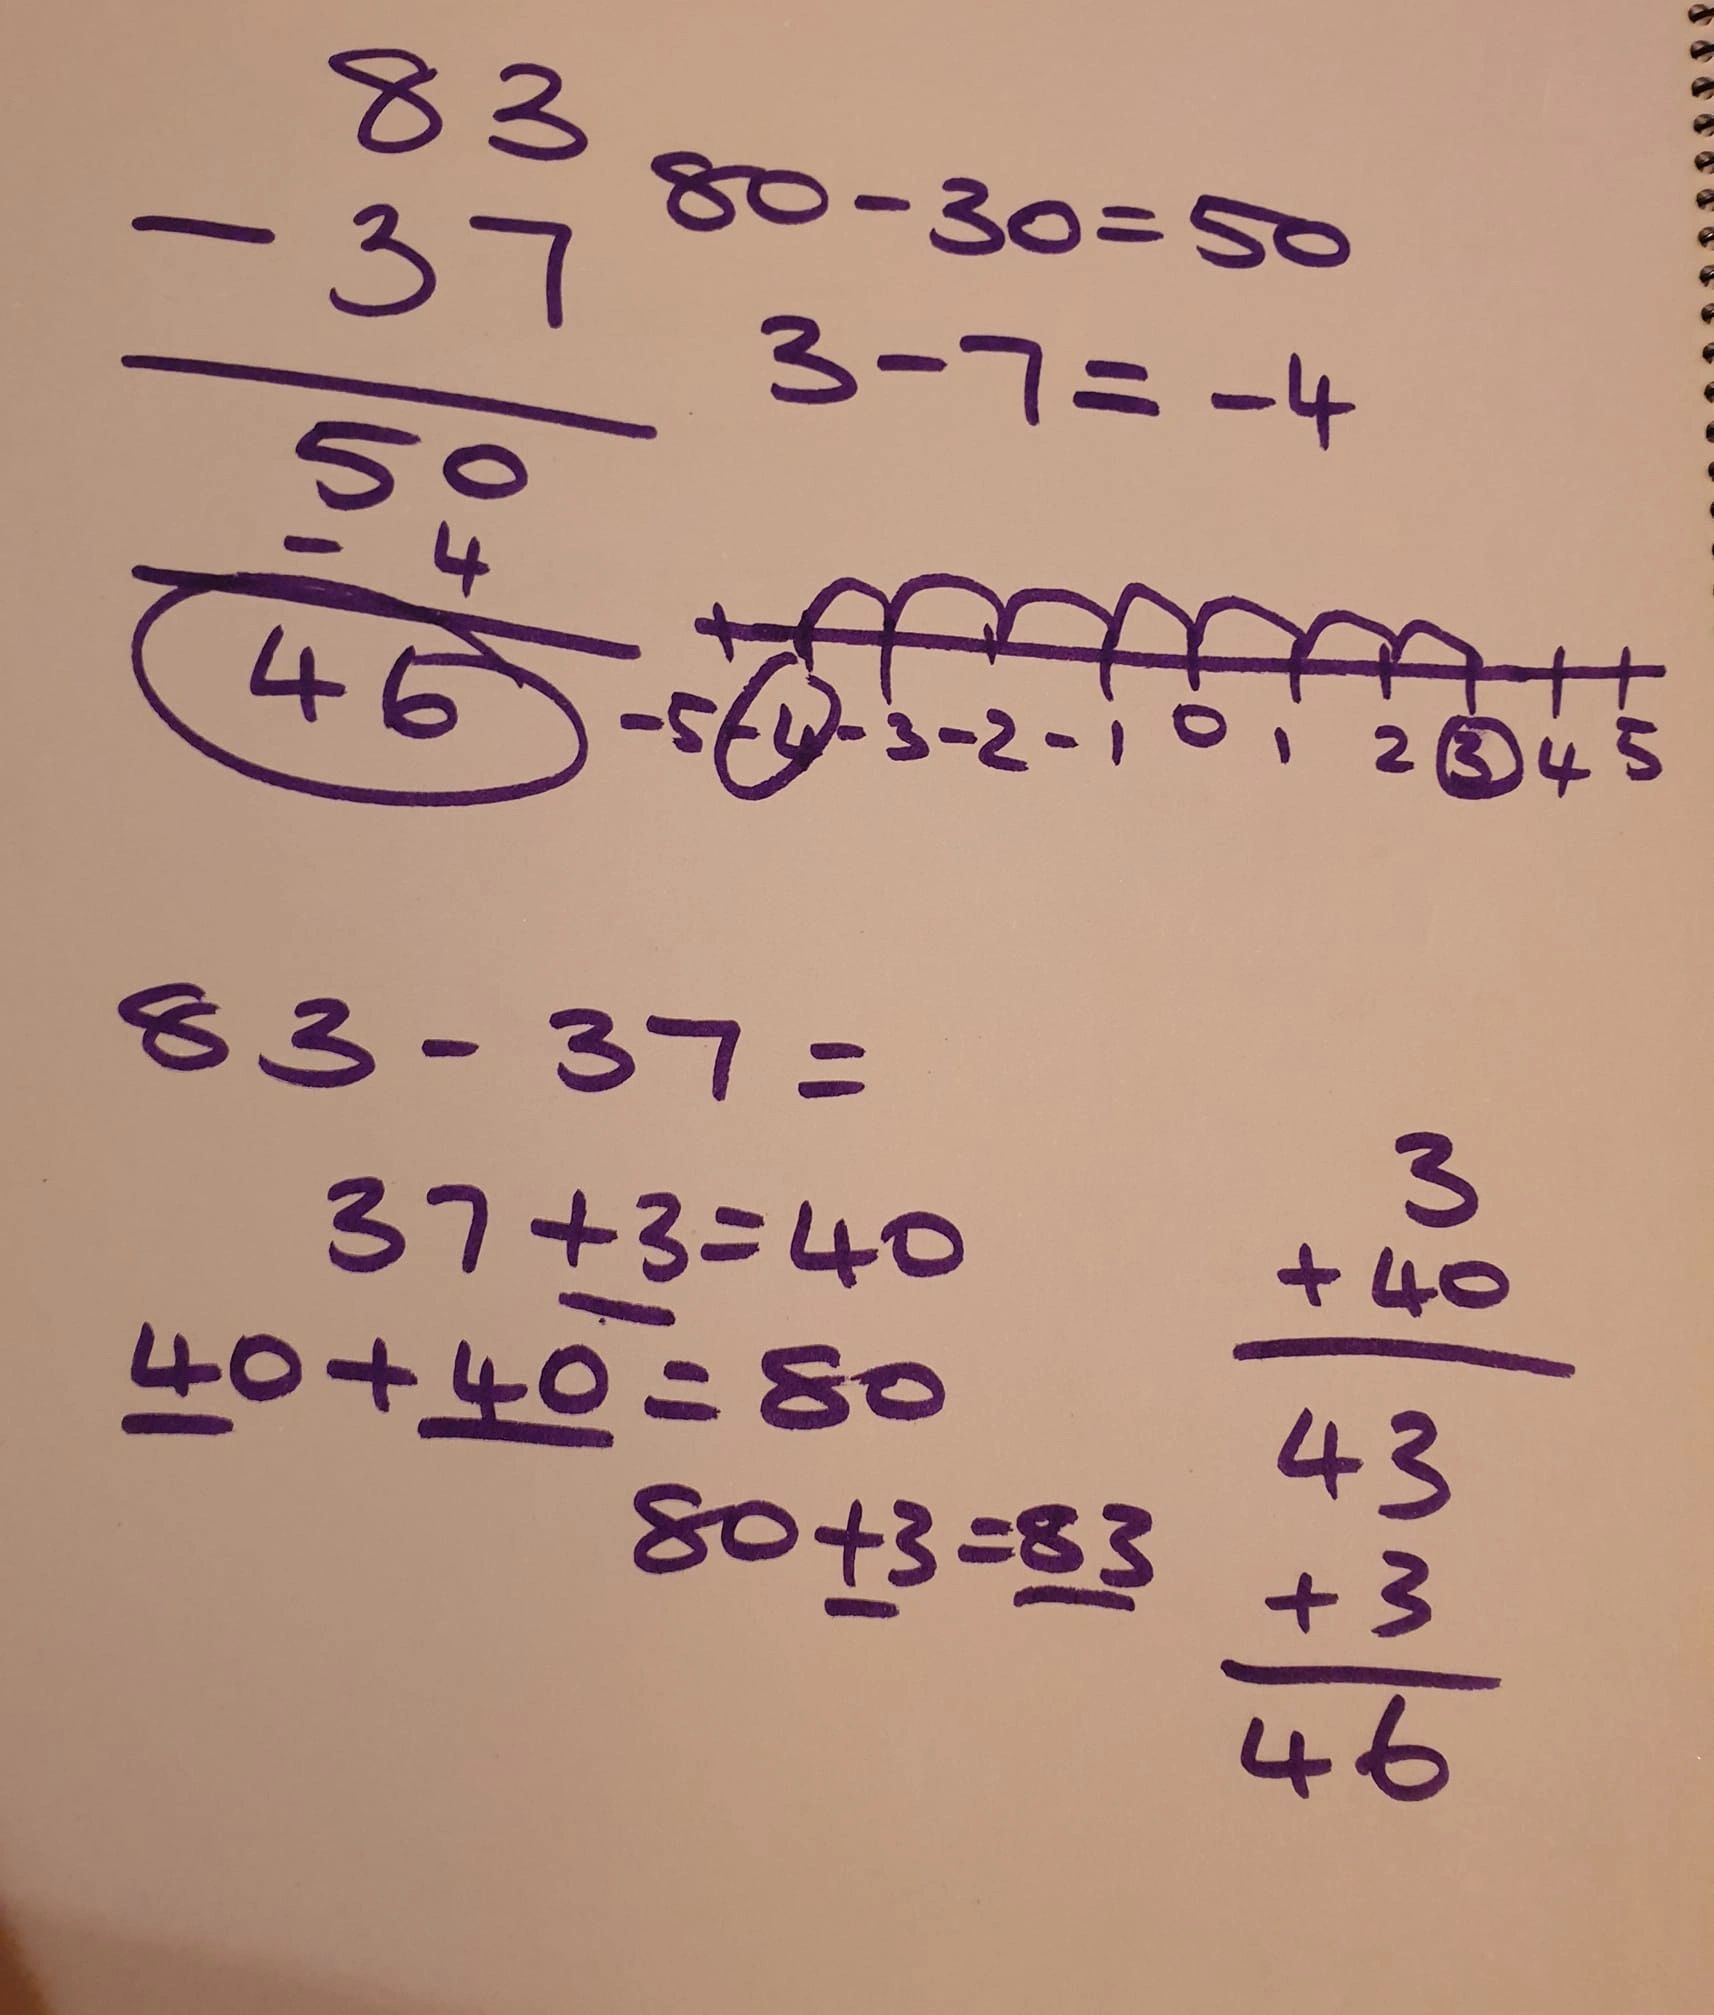 83
- 37
50
- 4
46
80 - 30 = 50
3 - 7 = -4
-5 -4 -3 -2 -1 0 1 2 3 4 5
83 - 37 =
37 + 3 = 40
40 + 40 = 80
80 + 3 = 83
3
+ 40
43
+ 3
46